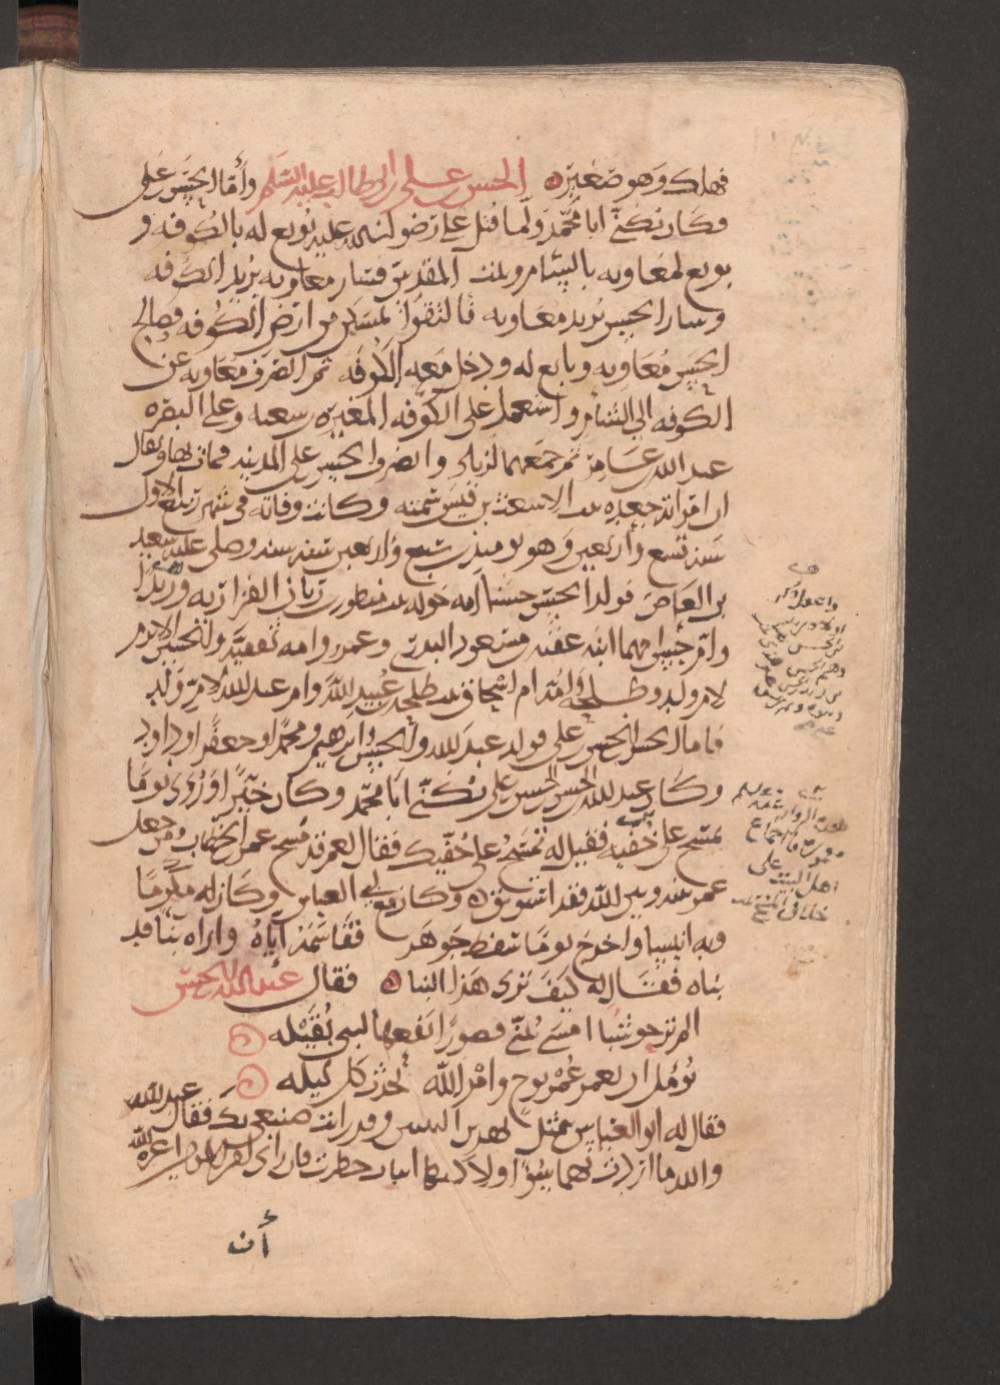 فهلك وهو صغير ه الحسن بن علي بن ابي طالب عليه السلم وأما الحسن بن علي
فكان يكنى ابا محمد ولما قتل علي رضوان الله عليه بويع له بالكوفه و
بويع لمعاويه بالشام وببيت المقدس فسار معاويه يريد الكوفه
وسار الحسن يريد معاويه فالتقوا بمسكن من ارض الكوفه فصالح
الحسن معاويه وبايع له ودخل معه الكوفه ثم انصرف معاويه عن
الكوفه الى الشام واستعمل على الكوفه المغيره بن شعبه وعلى البصره
عبد الله بن عامر ثم جمعهما لزياد وانصرف الحسن الى المدينه فمات بها ويقال
ان امراته جعده بنت الاشعث بن قيس سمته وكانت وفاته في شهر ربيع الاول
سنه تسع واربعين وهو يوميذ بن سبع واربعين سنه وصلى عليه سعيد
بن العاص فولد الحسن حسنا امه خوله بنت منظور بن زبان الفزاريه وزيدا
وام الحسن امهما ابنه عقبه بن مسعود البدري وعمر وامه ثقفيه والحسين الاثرم
لام ولد وطلحه وامه ام اسحاق بنت طلحه بن عبيد الله وام عبد الله لام ولد
فاما الحسن بن الحسن بن علي فولد عبد الله والحسن وابرهيم ومحمدا وجعفرا وداود
وكان عبد الله بن الحسن بن الحسن بن علي يكنى ابا محمد وكان خيرا وروي يوما
يمسح على خفيه فقيل له تمسح على خفيك فقال نعم قد مسح عمر بن الخطاب ومن جعل
عمر بينه وبين الله فقد استوثق ه وكان مع ابي العباس وكان له مكرما
وبه انيسا واخرج يوما سفط جوهر فقاسمه اياه واراه بنا قد
بناه فقال له كيف ترى هذا البنا ه فقال عبد الله بن الحسن
الم تر حوشبا امسى يبني قصورا نفعها لبني بقيله
يؤمل ان يعمر عمر نوح وامر الله يحدث كل ليله
فقال له ابو العباس تتمثل بهذين البيتين وقد رايت صنيعي بك فقال عبد الله
والله ما اردت بهما سوا ولكنها ابيات خطرت فان راى امير المومنين اعزه الله
أن
اهل البيت على